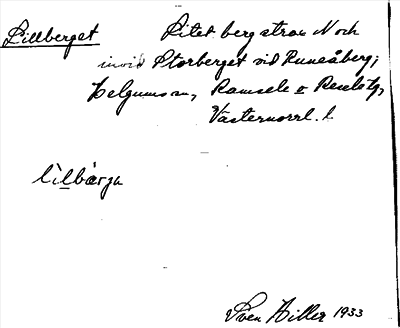 Lillberget Litet berg strax N och
invid Storberget vid Runeåberg;
Helgum sn, Ramsele o Resele tg,
Västernorrl. l.
lìlbárja
Sven Hiller 1933